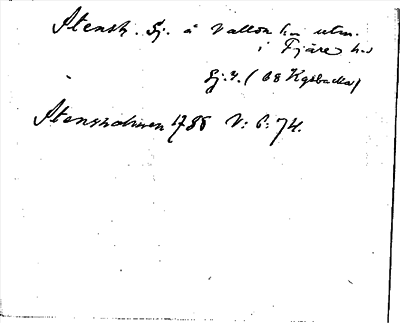 Stensh. Sj. å Vallda hu utm.
i Fjäre hd
Sj. r. (68 Kgsbacka)
Stensholmen 1788 V: 6: 74.